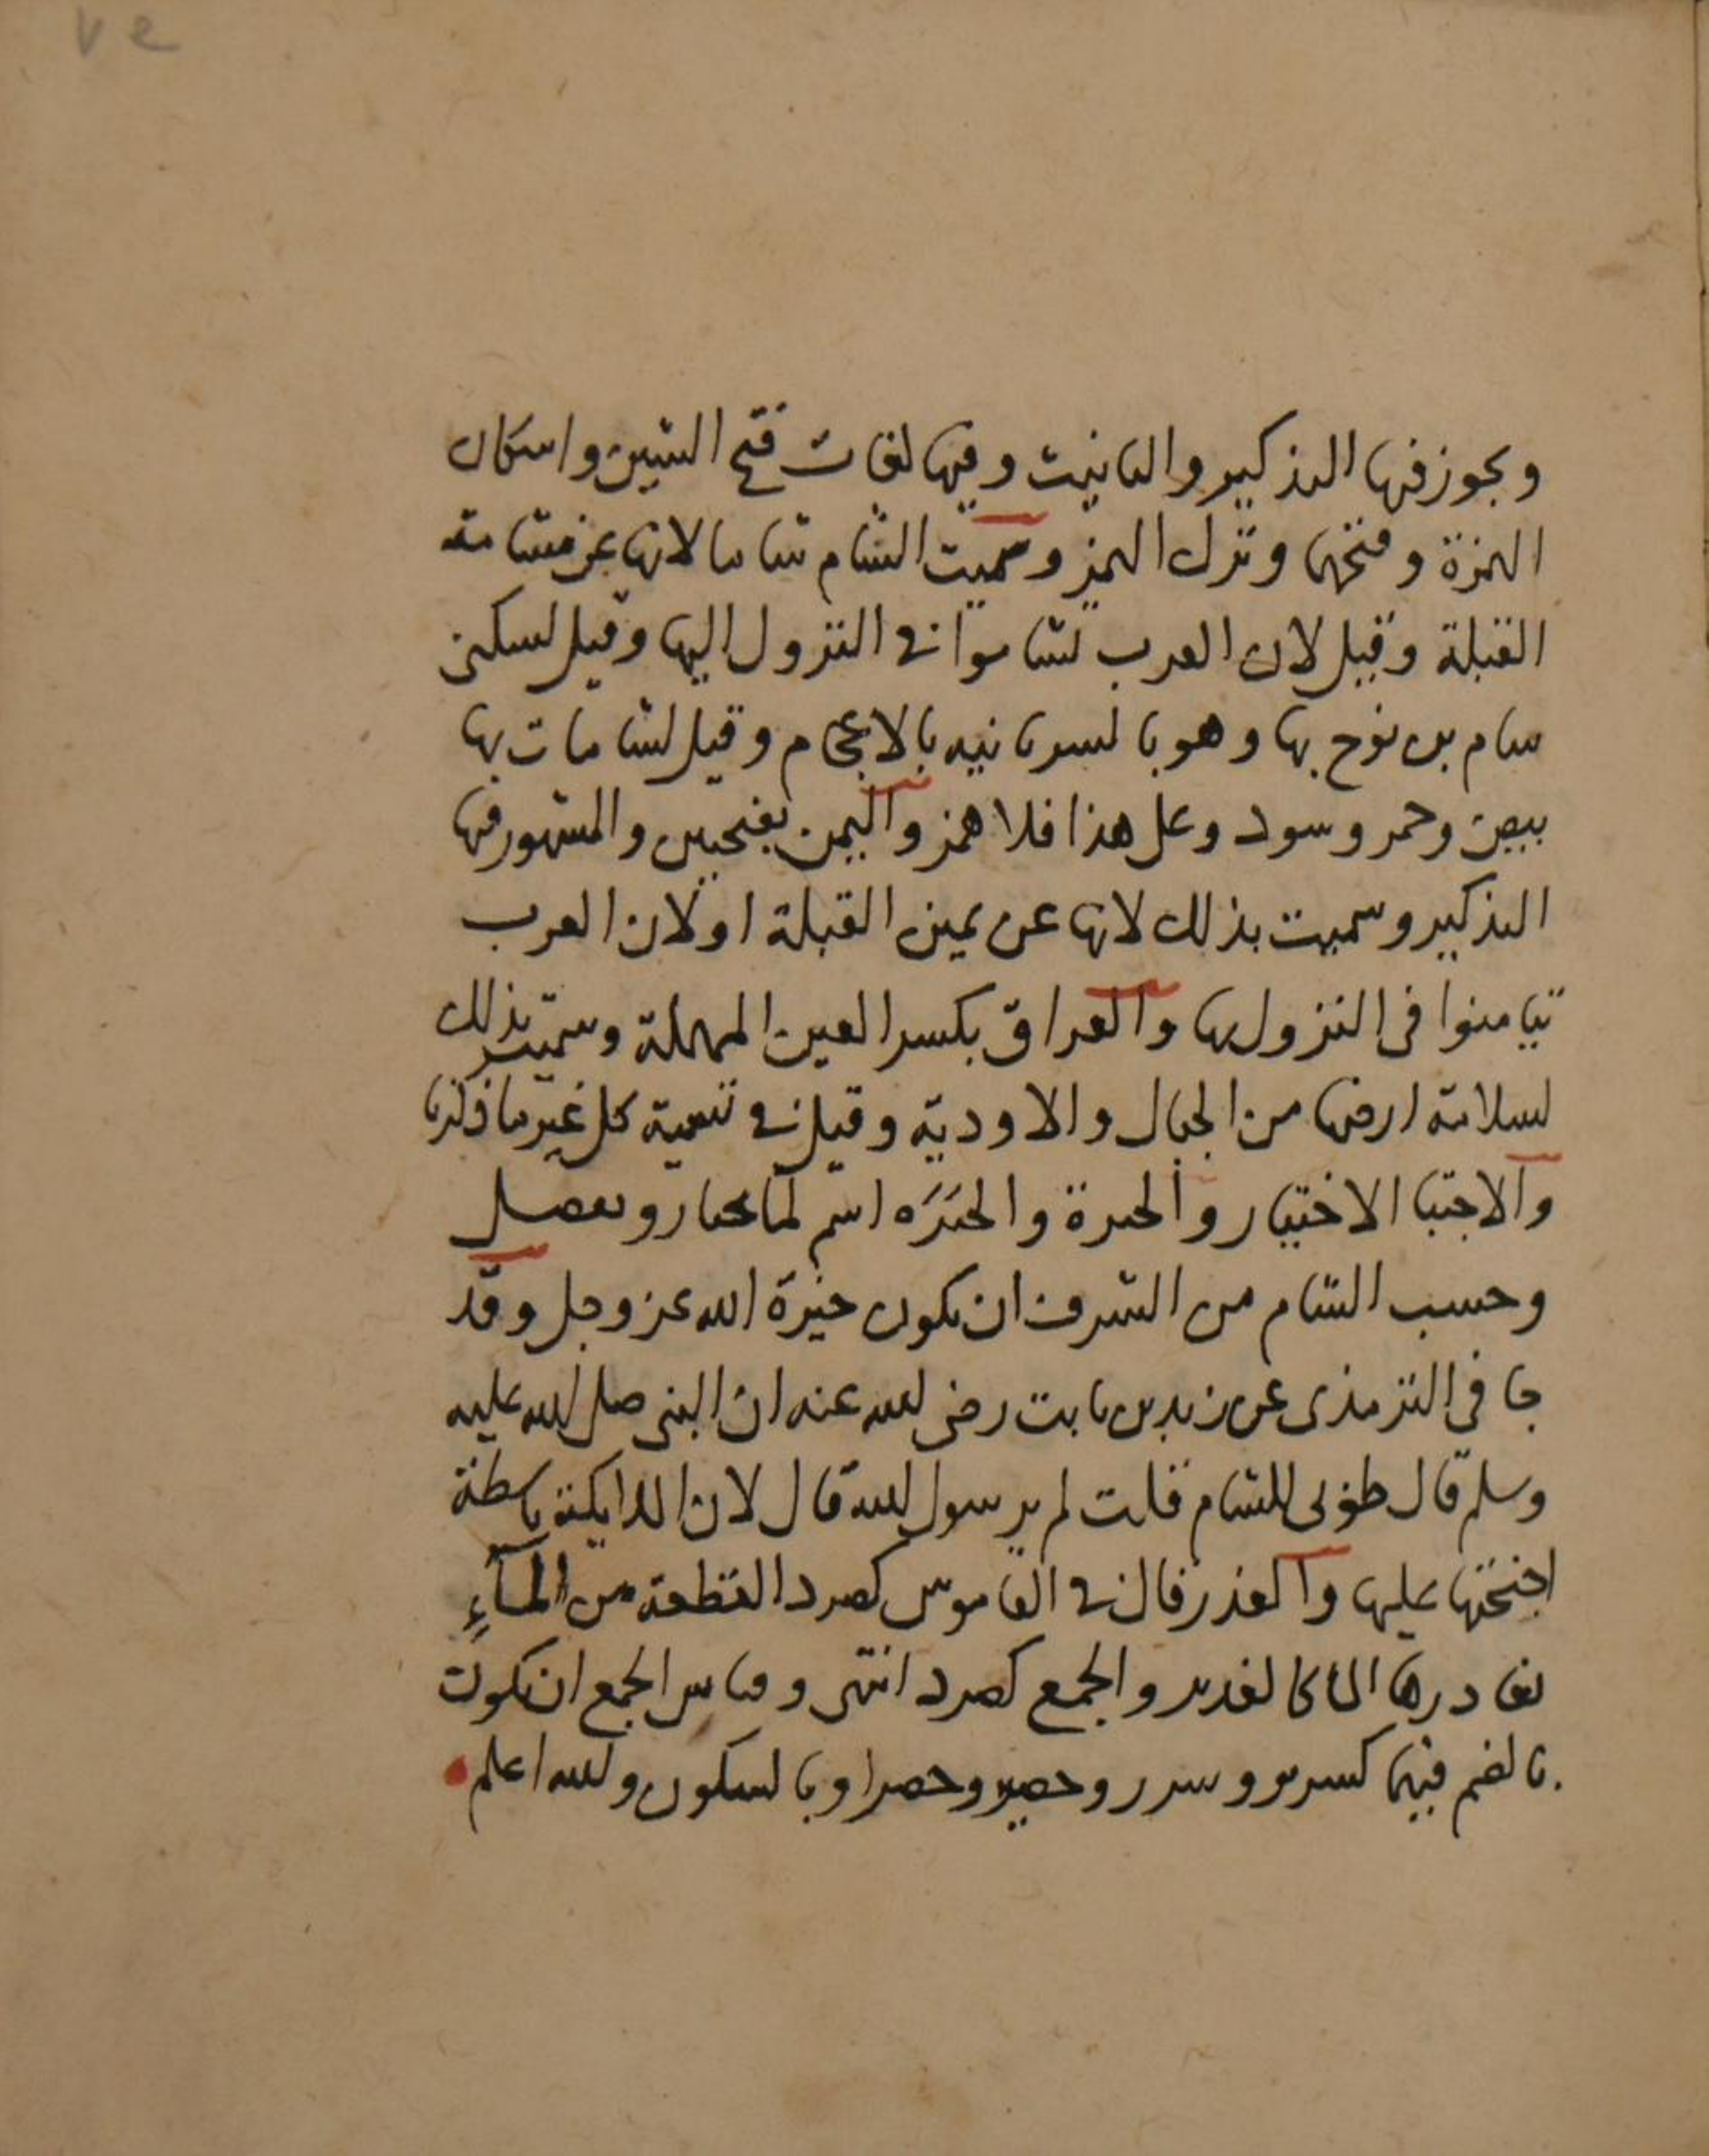 ويجوز فيها التذكير والتانيث وفيها لغات فتح الشين واسكان
الهمزة وفتحها وترك الهمز وسميت الشام شاما لانها عن مشامة
القبلة وقيل لان العرب تشاموا في النزول اليها وقيل لسكنى
سام بن نوح بها وهو بالسريانيه بالاعجام وقيل لشامات بها
بيض وحمر وسود وعلى هذا فلا همز واليمن بفتحتين والمشهور فيها
التذكير وسميت بذلك لانها عن يمين القبلة او لان العرب
تيامنوا في النزول بها والعراق بكسر العين المهملة وسميت بذلك
لسلامة ارضها من الجبال والاودية وقيل في تسمية كل غير ما ذكرنا
والاجتبا الاختيار والخيرة والخيَرَه اسم لما يختار ويفضل
وحسب الشام من الشرف ان يكون خيرة الله عز وجل وقد
جا في الترمذي عن زيد بن ثابت رضي الله عنه ان النبي صلى الله عليه
وسلم قال طوبى للشام قلت لم يرسول الله قال لان الملايكة باسطة
اجنحتها عليها والغدر قال في القاموس كصرد القطعة من المآءِ
يغادرها الما كالغدير والجمع كصرد انتهى وقياس الجمع ان يكون
بالضم فيهما كسرير وسرر وحصير وحصر او بالسكون والله اعلم